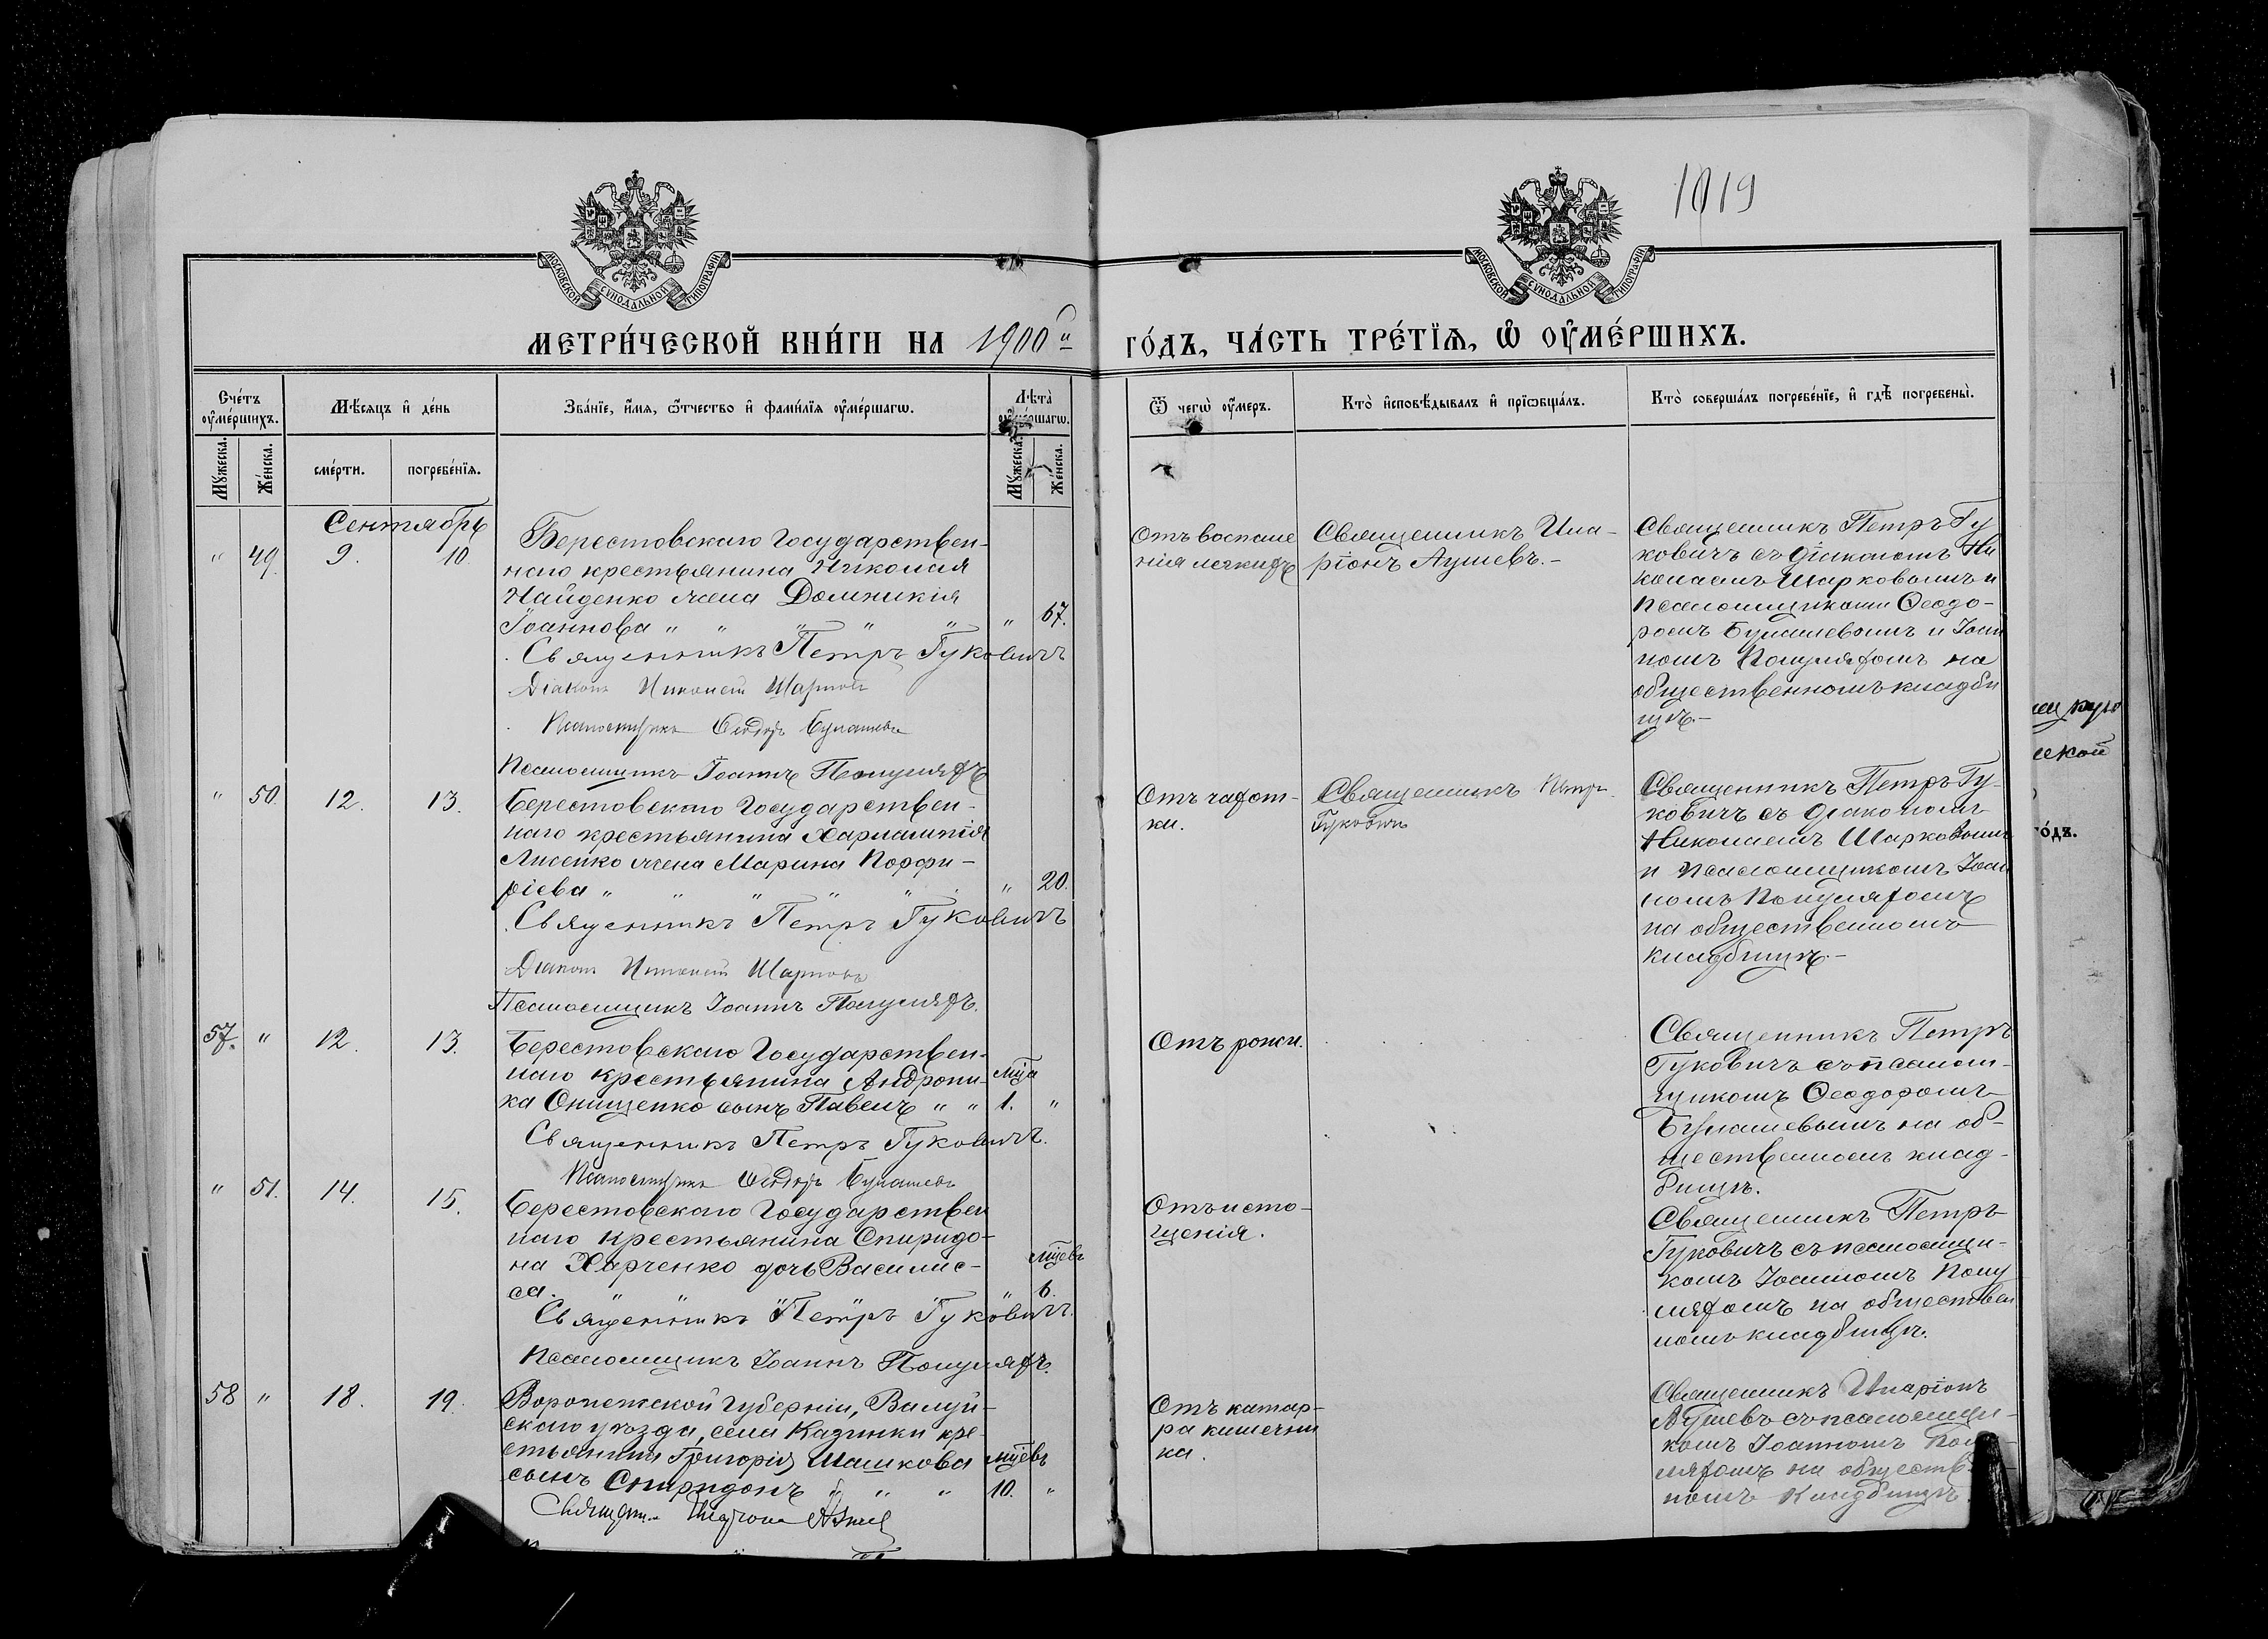 1019
МОСКОВСКОЙ СѴНОДАЛЬНОЙ ТИПОГРАФІИ
МОСКОВСКОЙ СѴНОДАЛЬНОЙ ТИПОГРАФІИ
МЕТРИ́ЧЕСКОЙ КНИ́ГИ НА 1900й ГО́ДЪ, ЧА́СТЬ ТРЕ́ТІЯ, Ѡ ОУМЕ́РШИХЪ.
Сче́тъ оуме́ршихъ.
Мѣсяцъ и де́нь
Зва́ніе, и҆́мя, ѻ҆́тчество и фами́лія оуме́ршагѡ.
Лѣта̀ оуме́ршагѡ.
Ѿ чегѡ̀ оу́меръ.
Кто̀ и҆сповѣ́дывалъ и прїѡбща́лъ.
Кто̀ соверша́лъ погребе́ніе, и гдѣ̀ погребены̀.
Мꙋ́жеска.
Же́нска.
сме́рти.
погребе́нїя.
Мꙋ́жеска.
Же́нска.
Сентябрь
" 49. 9. 10.
Берестовскаго Государствен-
наго крестьянина Николая
Найденко жена Домникія
Іоаннова " " " " " " 67.
Священникъ Петръ Гуковичъ
Діаконъ Николай Шарковъ
Псаломщикъ Ѳеодоръ Булашевъ
Псаломщикъ Іоаннъ Полуляхъ
Отъ воспале
нія легкихъ
Священникъ Ила-
ріонъ Аушевъ.-
Священникъ Петръ Гу
ковичъ съ діакономъ Ни
колаемъ Шарковымъ и
псаломщиками Ѳеодо-
ромъ Булашевымъ и Іоан
номъ Полуляхомъ на
общественномъ кладби
щѣ.-
" 50. 12. 13.
Берестовскаго Государствен-
наго крестьянина Харлампія
Лисенко жена Марина Порфи-
ріева " " " " " " 20.
Священникъ Петръ Гуковичъ
Діаконъ Николай Шарковъ
Псаломщикъ Іоаннъ Полуляхъ.
Отъ чахот-
ки.
Священникъ Петръ
Гуковичъ
Священникъ Петръ Гу-
ковичъ съ діакономъ
Николаемъ Шарковымъ
и псаломщикомъ Іоан
номъ Полуляхомъ
на общественномъ
кладбищѣ.-
57. " 12. 13.
Берестовскаго Государствен-
наго крестьянина Андрони-
ка Онищенко сынъ Павелъ " " мца 1. "
Священникъ Петръ Гуковичъ.
Псаломщикъ Ѳеодоръ Булашевъ
Отъ рожи.
Священникъ Петръ
Гуковичъ съ псалом-
щикомъ Ѳеодоромъ
Булашевымъ на об-
щественномъ клад-
бищѣ.
" 51. 14. 15.
Берестовскаго Государствен
наго крестьянина Спиридо-
на Харченко дочь Василис-
са. " " " " " " мцевъ 6.
Священникъ Петръ Гуковичъ.
Псаломщикъ Іоаннъ Полуляхъ.
Отъ исто-
щенія.
Священникъ Петръ
Гуковичъ съ псаломщи-
комъ Іоанномъ Полу
ляхомъ на обществен
номъ кладбищѣ.
58 " 18. 19.
Воронежской Губерніи, Валуй-
скаго уѣзда, села Казинки кре-
стьянина Григорія Машкова
сынъ Спиридонъ " " " мцевъ 10. "
Отъ катар-
ра кишечни
ка.
Священникъ Иларіонъ
Аушевъ съ псаломщи-
комъ Іоанномъ Полу-
ляхомъ на обществ
номъ кладбищѣ.
го́дъ.